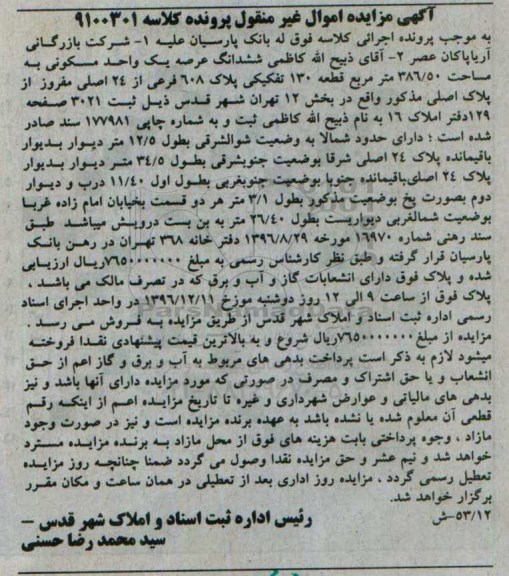 آگهی مزایده اموال غیر منقول پرونده کلاسه ۹۱۰۰۳۰۱
به موجب پرونده اجرائی کلاسه فوق له بانک پارسیان علیه ۱- شرکت بازرگانی
آریاپاکان عصر ۲- آقای ذبیح الله کاظمی ششدانگ عرصه یک واحد مسکونی به
مساحت ۳۸۶/۵۰ متر مربع قطعه ۱۳۰ تفکیکی پلاک ۶۰۸ فرعی از ۲۴ اصلی مفروز از
پلاک اصلی مذکور واقع در بخش ۱۲ تهران شهر قدس ذیل ثبت ۳۰۲۱ صفحه
۱۲۹دفتر املاک ۱۶ به نام ذبیح الله کاظمی ثبت و به شماره چاپی ۱۷۷۹۸۱ سند صادر
شده است ؛ دارای حدود شمالا به وضعیت شوالشرقی بطول ۱۲/۵ متر دیوار بدیوار
باقیمانده پلاک ۲۴ اصلی شرقا بوضعیت جنوبشرقی بطول ۳۴/۵ متر دیوار بدیوار
پلاک ۲۴ اصلی‌باقیمانده جنوبا بوضعیت جنوبغربی بطول اول ۱۱/۴۰ درب و دیوار
دوم بصورت پخ بوضعیت مذکور بطول ۳/۱ متر هر دو قسمت بخیابان امام زاده غربا
بوضعیت شمالغربی دیواریست بطول ۲۶/۴۰ متر به بن بست درویش میباشد طبق
سند رهنی شماره ۱۶۹۷۰ مورخه ۱۳۹۶/۸/۲۹ دفتر خانه ۳۶۸ تهران در رهن بانک
پارسیان قرار گرفته و طبق نظر کارشناس رسمی به مبلغ ۷۶۵۰۰۰۰۰۰۰ریال ارزیابی
شده و پلاک فوق دارای انشعابات گاز و آب و برق که در تصرف مالک می باشد .
پلاک فوق از ساعت ۹ الی ۱۲ روز دوشنبه مورخ ۱۳۹۶/۱۲/۱۱ در واحد اجرای اسناد
رسمی اداره ثبت اسناد و املاک شهر قدس از طریق مزایده به فروش می رسد .
مزایده از مبلغ۷۶۵۰۰۰۰۰۰۰ریال شروع و به بالاترین قیمت پیشنهادی نقدا فروخته
میشود لازم به ذکر است پرداخت بدهی های مربوط به آب و برق و گاز اعم از حق
انشعاب و یا حق اشتراک و مصرف در صورتی که مورد مزایده دارای آنها باشد و نیز
بدهی های مالیاتی و عوارض شهرداری و غیره تا تاریخ مزایده اعم از اینکه رقم
قطعی آن معلوم شده یا نشده باشد به عهده برنده مزایده است و نیز در صورت وجود
مازاد ، وجوه پرداختی بابت هزینه های فوق از محل مازاد به برنده مزایده مسترد
خواهد شد و نیم عشر و حق مزایده نقدا وصول می گردد ضمنا چنانچه روز مزایده
تعطیل رسمی گردد ، مزایده روز اداری بعد از تعطیلی در همان ساعت و مکان مقرر
برگزار خواهد شد.
۵۳/۱۲-ش
رئیس اداره ثبت اسناد و املاک شهر قدس –
سید محمد رضا حسنی